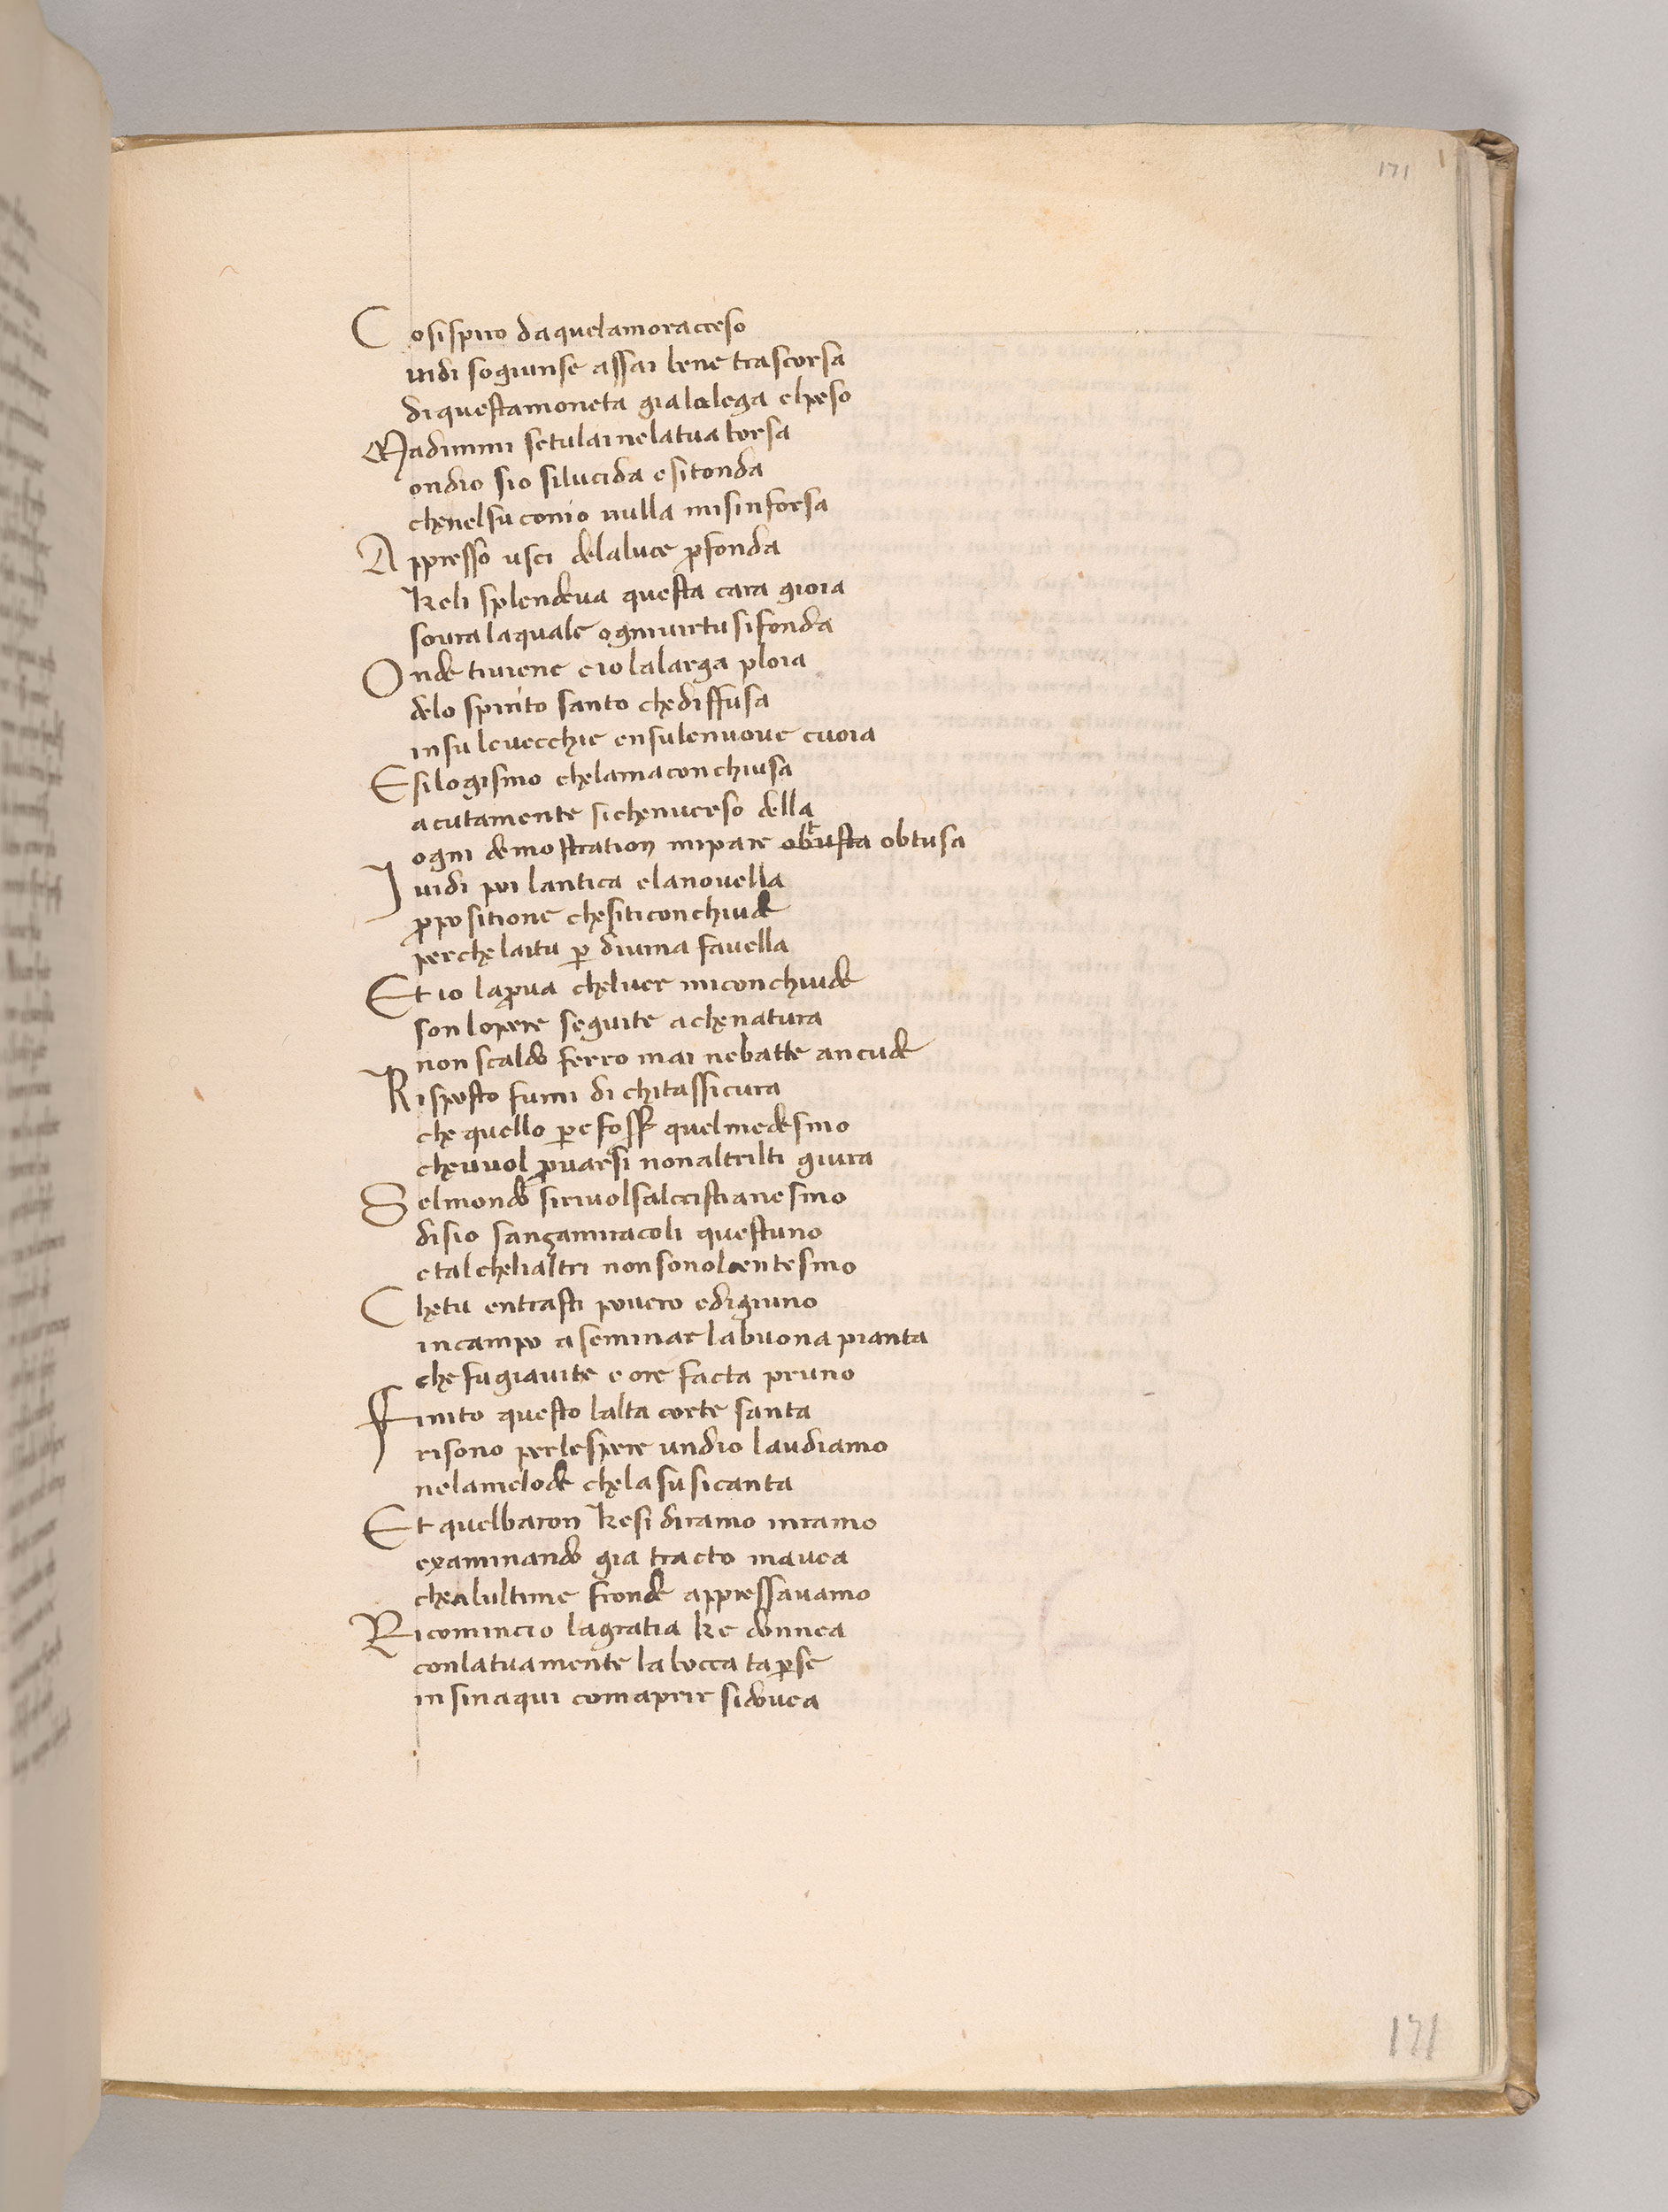 171
Cosispiro daquelamoracceso
indi sogiunse assai bene trascorsa
diquestamoneta gia lalega elpeso
Madimmi setulai nelatua borsa
ondio sio silucida esitonda
chenelsu conio nulla misinforsa
Appresso usci delaluce pfonda
keli splendeua questa cara gioia
soura laquale ogniuirtu sifonda
Onde tiuiene eio lalarga ploia
delo spirito santo chediffusa
insu leuecchie ensulenuoue cuoia
Esilogismo chelamaconchiusa
acutamente sichenuerso della
ogni demostration mipare obtusa
I uidi poi lantica elanouella
ppositione chesiticonchiude
perche laitu p diuina fauella
Et io lapua cheluer miconchiude
son lopere seguite achenatura
non scaldo ferro mai nebatte ancude
Risposto fummi di chitassicura
che quello pe fosser quelmedesmo
cheuuol puarsi nonaltrilti giura
Selmondo siriuolsalcristianesmo
disio sanzamiracoli questuno
etalchelialtri nonsonolcentesmo
Chetu entrasti pouero edigiuno
incampo aseminar labuona pianta
che fugiauite e ore facta pruno
Finito questo lalta corte santa
risono perlespere undio laudiamo
nelamelode chelasusicanta
Et quelbaron kesi diramo inramo
examinando gia tracto maueа
chealultime fronde appressauamo
Ricomincio lagratia ke donnea
conlatuamente labocca tapse
insinaqui comaprir sidouea
171